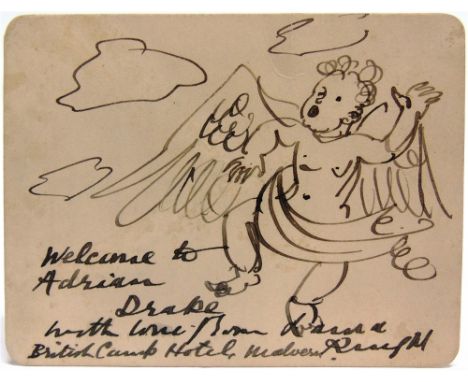 Welcome to
Adrian
Drake
with love from Laura
British Camp Hotel, Malvern Knight